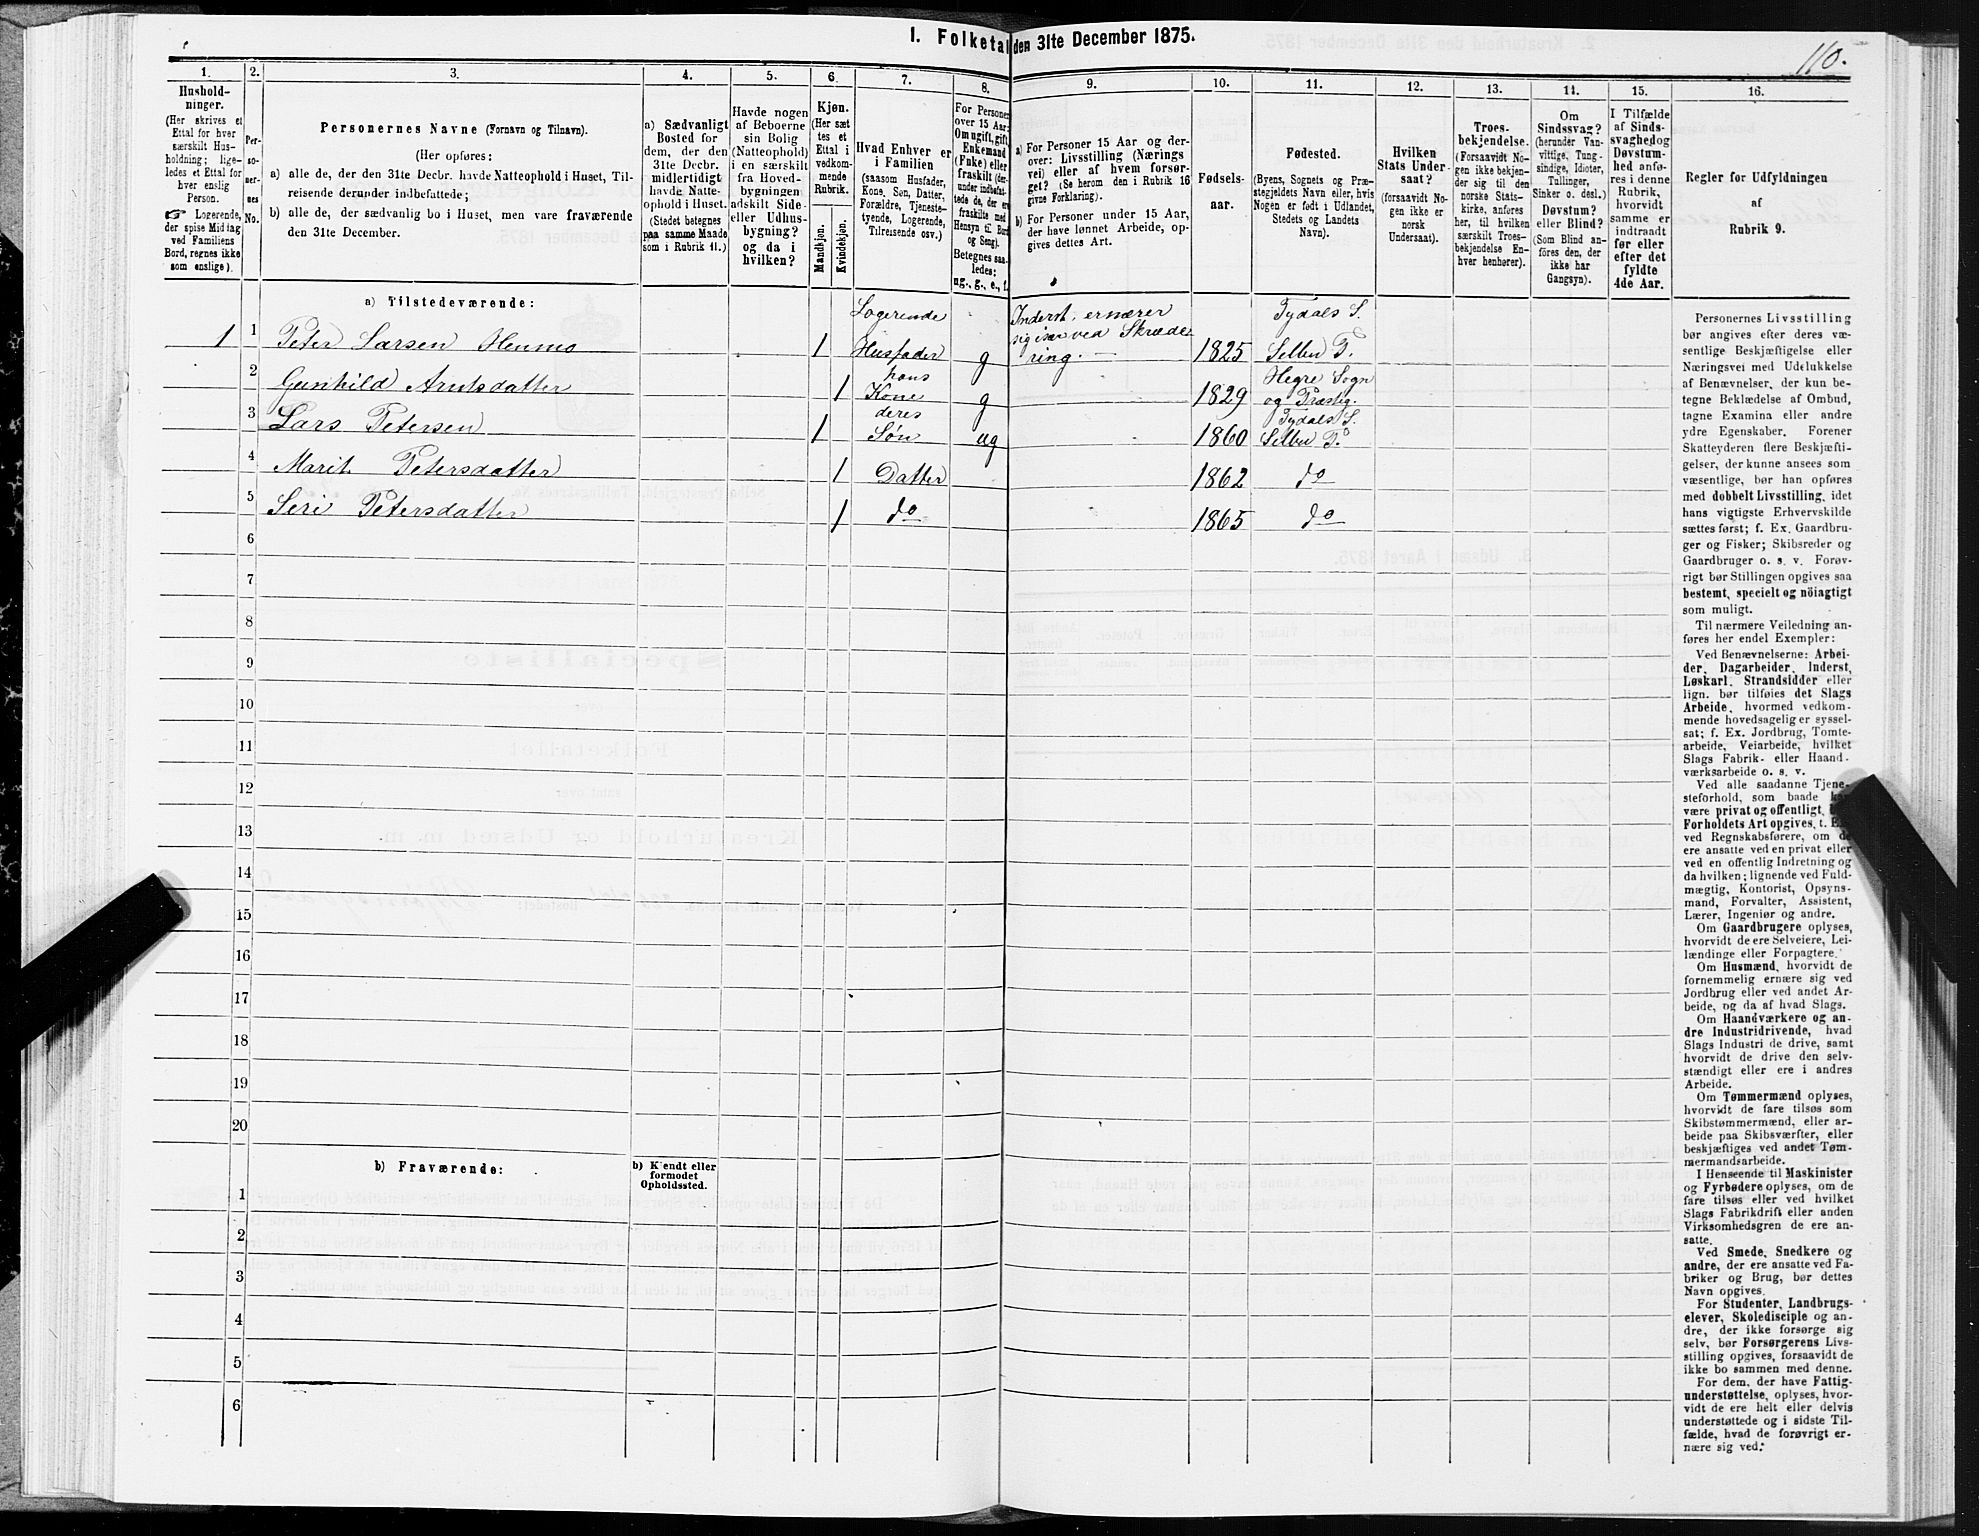 I. Folketal den 31te December 1875.
110.
1.
Hushold-
ninger.
(Her skrives et
Ettal for hver
særskilt Hus-
holdning; lige-
ledes et Ettal for
hver enslig
Person.
☞ Logerende,
der spise Middag
ved Familiens
Bord, regnes ikke
som enslige).
2.
Per-
so-
ner-
nes
No.
3.
Personernes Navne (Fornavn og Tilnavn).
(Her opføres:
a) alle de, der den 31te Decbr. havde Natteophold i Huset, Til-
reisende derunder indbefattede;
b) alle de, der sædvanlig bo i Huset, men vare fraværende
den 31te December.
4.
a) Sædvanligt
Bosted for
dem, der den
31te Decbr.
midlertidigt
havde Natte-
ophold i Huset.
(Stedet betegnes
paa samme Maade
som i Rubrik 11.)
5.
Havde nogen
af Beboerne
sin Bolig
(Natteophold)
i en særskilt
fra Hoved-
bygningen
adskilt Side-
eller Udhus-
bygning?
og da i
hvilken?
6.
Kjøn.
(Her sæt
tes et
Ettal i
vedkom-
mende
Rubrik.
Mandkjøn.
Kvindekjøn.
7.
Hvad Enhver er
i Familien
(saasom Husfader,
Kone, Søn, Datter,
Forældre, Tjeneste-
tyende, Logerende,
Tilreisende osv.)
8.
For Personer
over 15 Aar:
Om ugift, gift,
Enkemand
(Enke) eller
fraskilt (der-
under indbefat-
tede de, der ere
fraskilte med
Hensyn til Bord
og Seng).
Betegnes saa-
ledes:
ug., g., e., f.
9.
a) For Personer 15 Aar og der-
over: Livsstilling (Nærings
vei) eller af hvem forsør-
get? (Se herom den i Rubrik 16
givne Forklaring).
b) For Personer under 15 Aar,
der have lønnet Arbeide, op-
gives dettes Art.
10.
Fødsels-
aar.
11.
Fødested.
(Byens, Sognets og Præ-
stegjeldets Navn eller, hvis
Nogen er født i Udlandet,
Stedets og Landets
Navn).
12.
Hvilken
Stats Under-
saat?
(forsaavidt No-
gen ikke er
norsk
Undersaat).
13.
Troes-
bekjendelse.
(Forsaavidt No-
gen ikke bekjen-
der sig til den
norske Stats-
kirke, anføres
her, til hvilken
særskilt Troes-
bekjendelse En-
hver henhører).
14.
Om
Sindssvag?
(herunder Van-
vittige, Tung-
sindige, Idioter,
Tullinger,
Sinker o. desl.)
Døvstum?
eller Blind?
(Som Blind an-
føres den, der
ikke har
Gangsyn).
15.
I Tilfælde
af Sinds-
svaghed og
Døvstum-
hed anfø-
res i denne
Rubrik,
hvorvidt
samme er
indtraadt
før eller
efter det
fyldte
4de Aar.
16.
Regler for Udfyldningen
af
Rubrik 9.
a) Tilstedeværende:
1 1 Peter Larsen Henmo 1 Logerende Husfader g Inderst, ernærer sig især ved Skrædering. 1825 Tydals S. Selbu P.
2 Gunhild Arntsdatter 1 hans Kone g 1829 Hegre Sogn og Præstig.
3 Lars Petersen 1 deres Søn ug 1860 Tydals S. Selbu P.
4 Marit Petersdatter 1 Datter 1862 do
5 Siri Petersdatter 1 do 1865 do
6
7
8
9
10
11
12
13
14
15
16
17
18
19
20
b) Fraværende:
b) Kjendt eller
formodet
Opholdssted.
1
2
3
4
5
6
Personernes Livsstilling
bør angives efter deres væ-
sentlige Beskjæftigelse eller
Næringsvei med Udelukkelse
af Benævnelser, der kun be-
tegne Beklædelse af Ombud,
tagne Examina eller andre
ydre Egenskaber. Forener
Skatteyderen flere Beskjæfti-
gelser, der kunne ansees som
væsentlige, bør han opføres
med dobbelt Livsstilling, idet
hans vigtigste Erhvervskilde
sættes først; f. Ex. Gaardbru-
ger og Fisker; Skibsreder og
Gaardbruger o. s. v. Forøv-
rigt bør Stillingen opgives saa
bestemt, specielt og nöiagtigt
som muligt.
Til nærmere Veiledning an-
føres her endel Exempler:
Ved Benævnelserne: Arbei-
der, Dagarbeider, Inderst,
Løskarl, Strandsidder eller
lign. bør tilføies det Slags
Arbeide, hvormed vedkom-
mende hovedsagelig er syssel-
sat; f. Ex. Jordbrug, Tomte-
arbeide, Veiarbeide, hvilket
Slags Fabrik- eller Haand-
værksarbeide o. s. v.
Ved alle saadanne Tjene-
steforhold, som baade kan
være privat og offentligt,
Forholdets Art opgives, t. Ex.
ved Regnskabsførere, om de
ere ansatte ved en privat eller
ved en offentlig Indretning og
da hvilken; lignende ved Fuld-
mægtig, Kontorist, Opsyns-
mand, Forvalter, Assistent,
Lærer, Ingeniør og andre.
Om Gaardbrugere oplyses,
hvorvidt de ere Selveiere, Lei-
lændinge eller Forpagtere.
Om Husmænd, hvorvidt de
fornemmelig ernære sig ved
Jordbrug eller ved andet Ar-
beide, og da af hvad Slags.
Om Haandværkere og an-
dre Industridrivende, hvad
Slags Industri de drive, samt
hvorvidt de drive den selv-
stændigt eller ere i andres
Arbeide.
Om Tømmermænd oplyses,
hvorvidt de fare tilsøs som
Skibstømmermænd, eller ar-
beide paa Skibsværfter, eller
beskjæftiges ved andet Tøm-
mermandsarbeide.
I Henseende til Maskinister
og Fyrbødere oplyses, om de
fare tilsøs eller ved hvilket
Slags Fabrikdrift eller anden
Virksomhedsgren de ere an-
satte.
Ved Smede, Snedkere og
andre, der ere ansatte ved Fa-
briker og Brug, bør dettes
Navn opgives.
For Studenter, Landbrugs-
elever, Skoledisciple og an-
dre, der ikke forsørge sig
selv, bør Forsørgerens Livs-
stilling opgives, forsaavidt de
ikke bo sammen med denne.
For dem, der have Fattig-
understøttelse, oplyses, hvor-
vidt de ere helt eller delvis
understøttede og i sidste Til-
fælde, hvad de forøvrigt er-
nære sig ved.